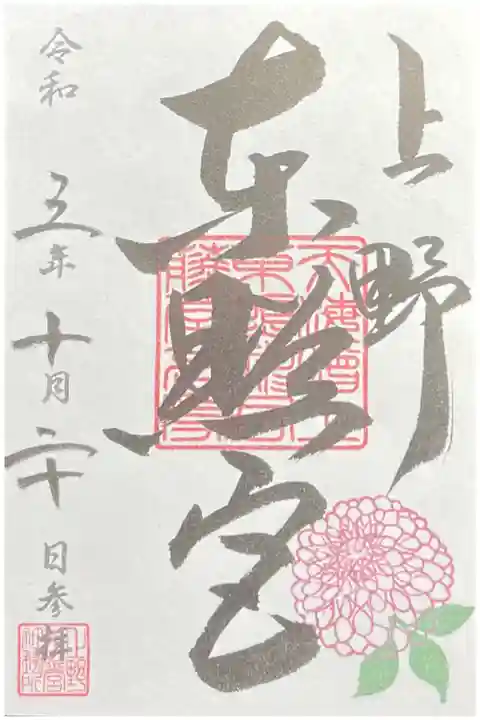 上野
東照宮
令和五年十月二十日参拝